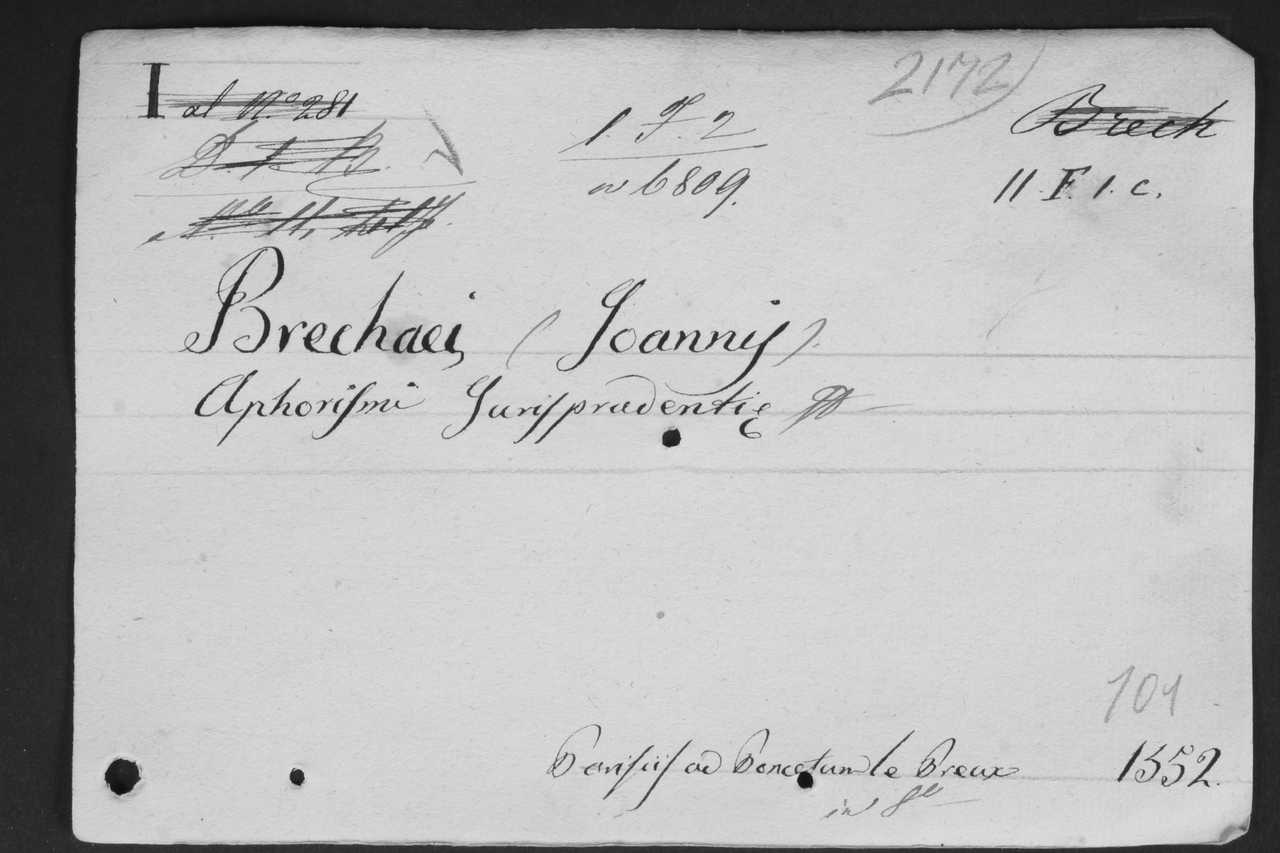 2172
I ad N.o 281
1. F. 2
Brech
w 6809.
11. F. 1. c.
Brechaei, (Joannis).
Aphorismi Jurisprudentię
101
Parisiis ad Poncetum le Preux 1552.
in 8o